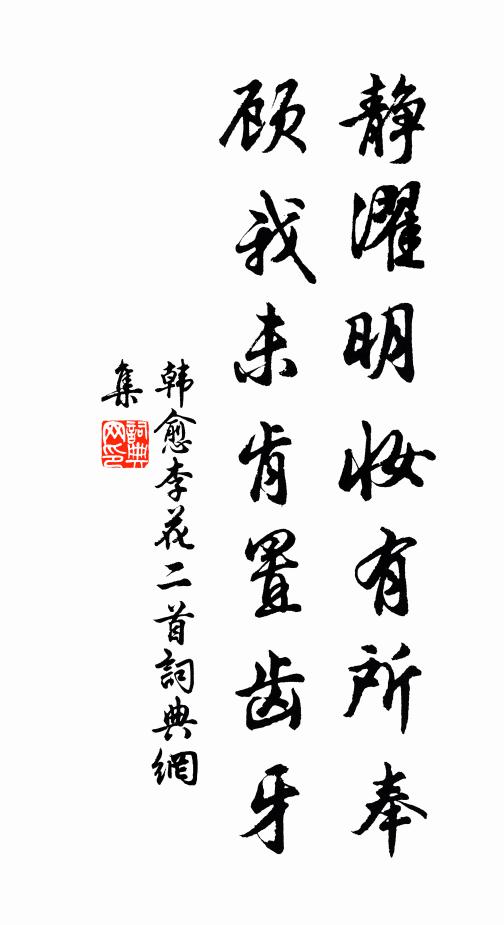 静濯明妆有所奉
顾我未肯置齿牙
韩愈李花二首詞典網
集
詞典
网印